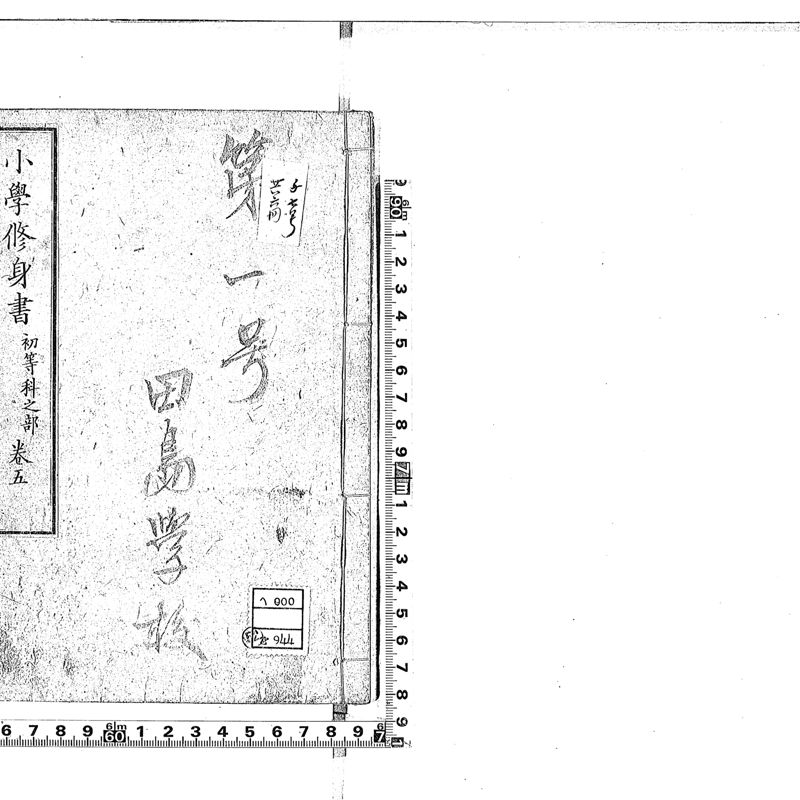 第一号
田島学校
廿六冊
小學修身書 初等科之部 卷五
000
776
6 7 8 9 60 1 2 3 4 5 6 7 8 9
90 1 2 3 4 5 6 7 8 9 1 2 3 4 5 6 7 8 9